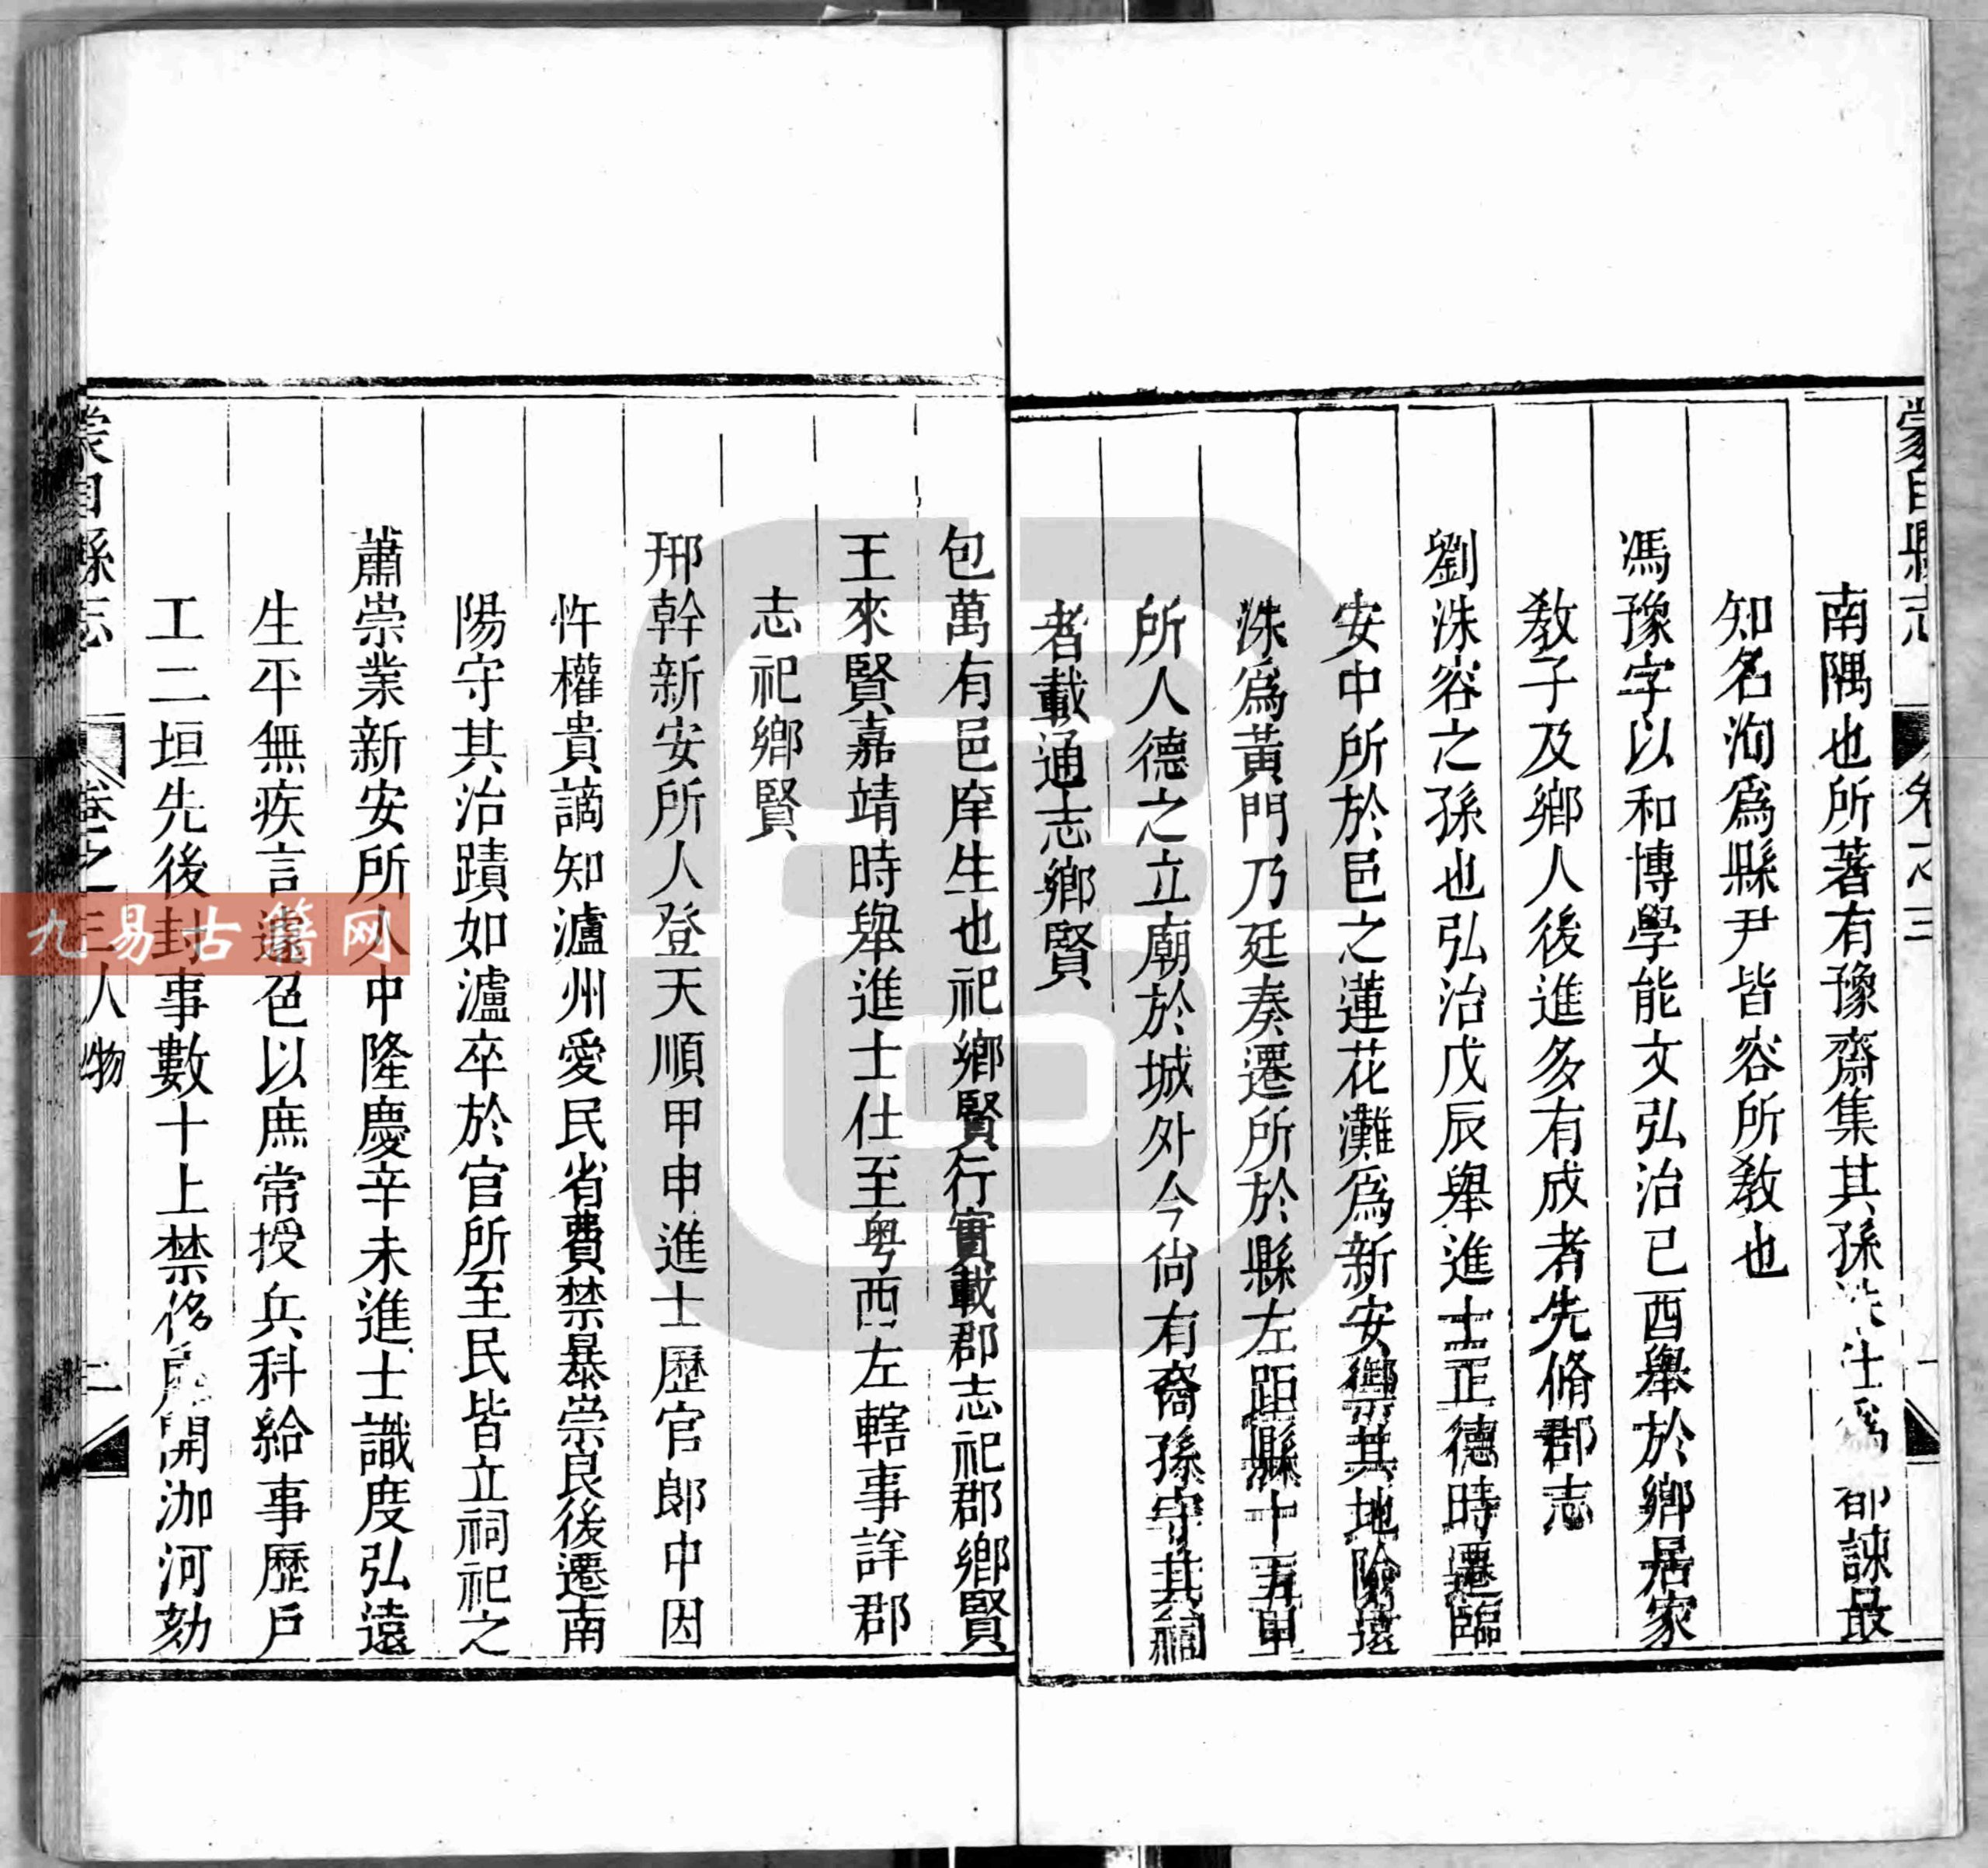 蒙自縣志 卷之三
南隅也所著有豫齋集其孫洙仕爲都諫最
知名洵爲縣尹皆容所教也
馮豫字以和博學能文弘治己酉舉於鄉居家
教子及鄉人後進多有成者先脩郡志
劉洙容之孫也弘治戊辰舉進士正德時遷臨
安中所於邑之蓮花灘爲新安禦其地險遠
洙爲黃門乃廷奏遷所於縣左距縣十五里
所人德之立廟於城外今尙有裔孫守其祠
者載通志鄉賢
包萬有邑庠生也祀鄉賢行實載郡志祀郡鄉賢
王來賢嘉靖時舉進士仕至粤西左轄事詳郡
志祀鄉賢
邢幹新安所人登天順甲申進士歷官郞中因
忤權貴謫知瀘州愛民省費禁暴崇良後遷南
陽守其治蹟如瀘卒於官所至民皆立祠祀之
蕭崇業新安所人中隆慶辛未進士識度弘遠
生平無疾言遽色以庶常授兵科給事歷戶
工二垣先後封事數十上禁侈開泇河劾
蒙自縣志 卷之三人物 二
九易古籍网